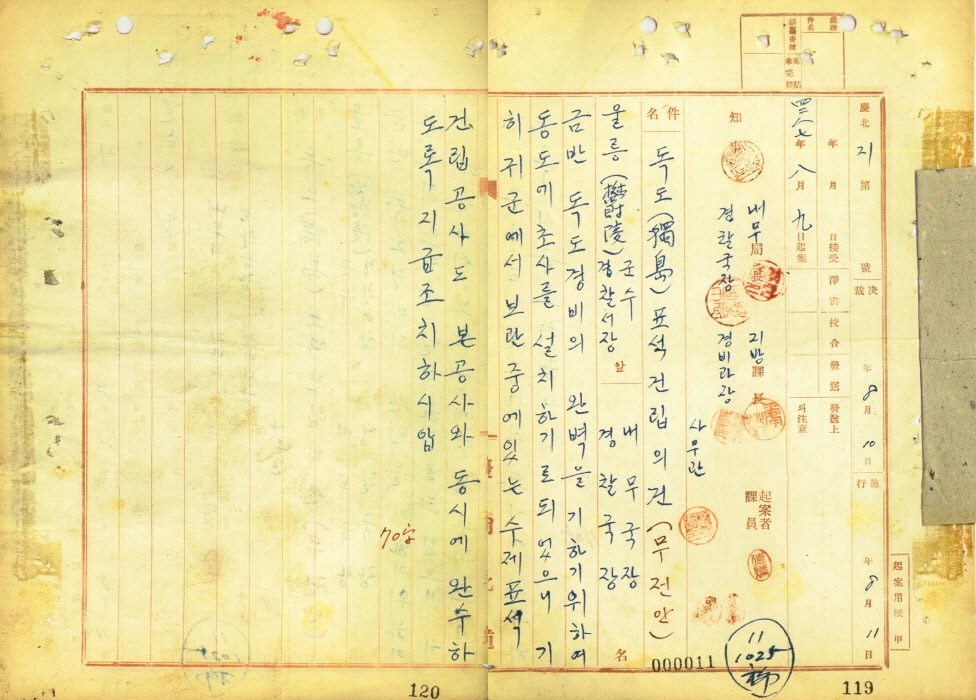 慶北 지 第 號
決裁 年 8月 10日
施行 年 8月 11日
起案用紙 甲
年 月 日接受
四二八七年 八月 九日起案
淨書 校合 發送
發送上의注意
知
내무局長 지방課長
경찰국장 경비과장
사무관
起案者
課員
件名 독도(獨島)표석건립의건(무전안)
울릉(欝陵)군수
경찰서장 앞
내무국장
경찰국장
名
금반 독도경비의 완벽을 기하기위하여
동도에 초사를 설치하기로되었으니 기
히 귀군에서 보관중에있는 수제표석
건립공사도 본공사와 동시에 완수하
도록 지급조치하시압
70字
11
1025
000011
119
120